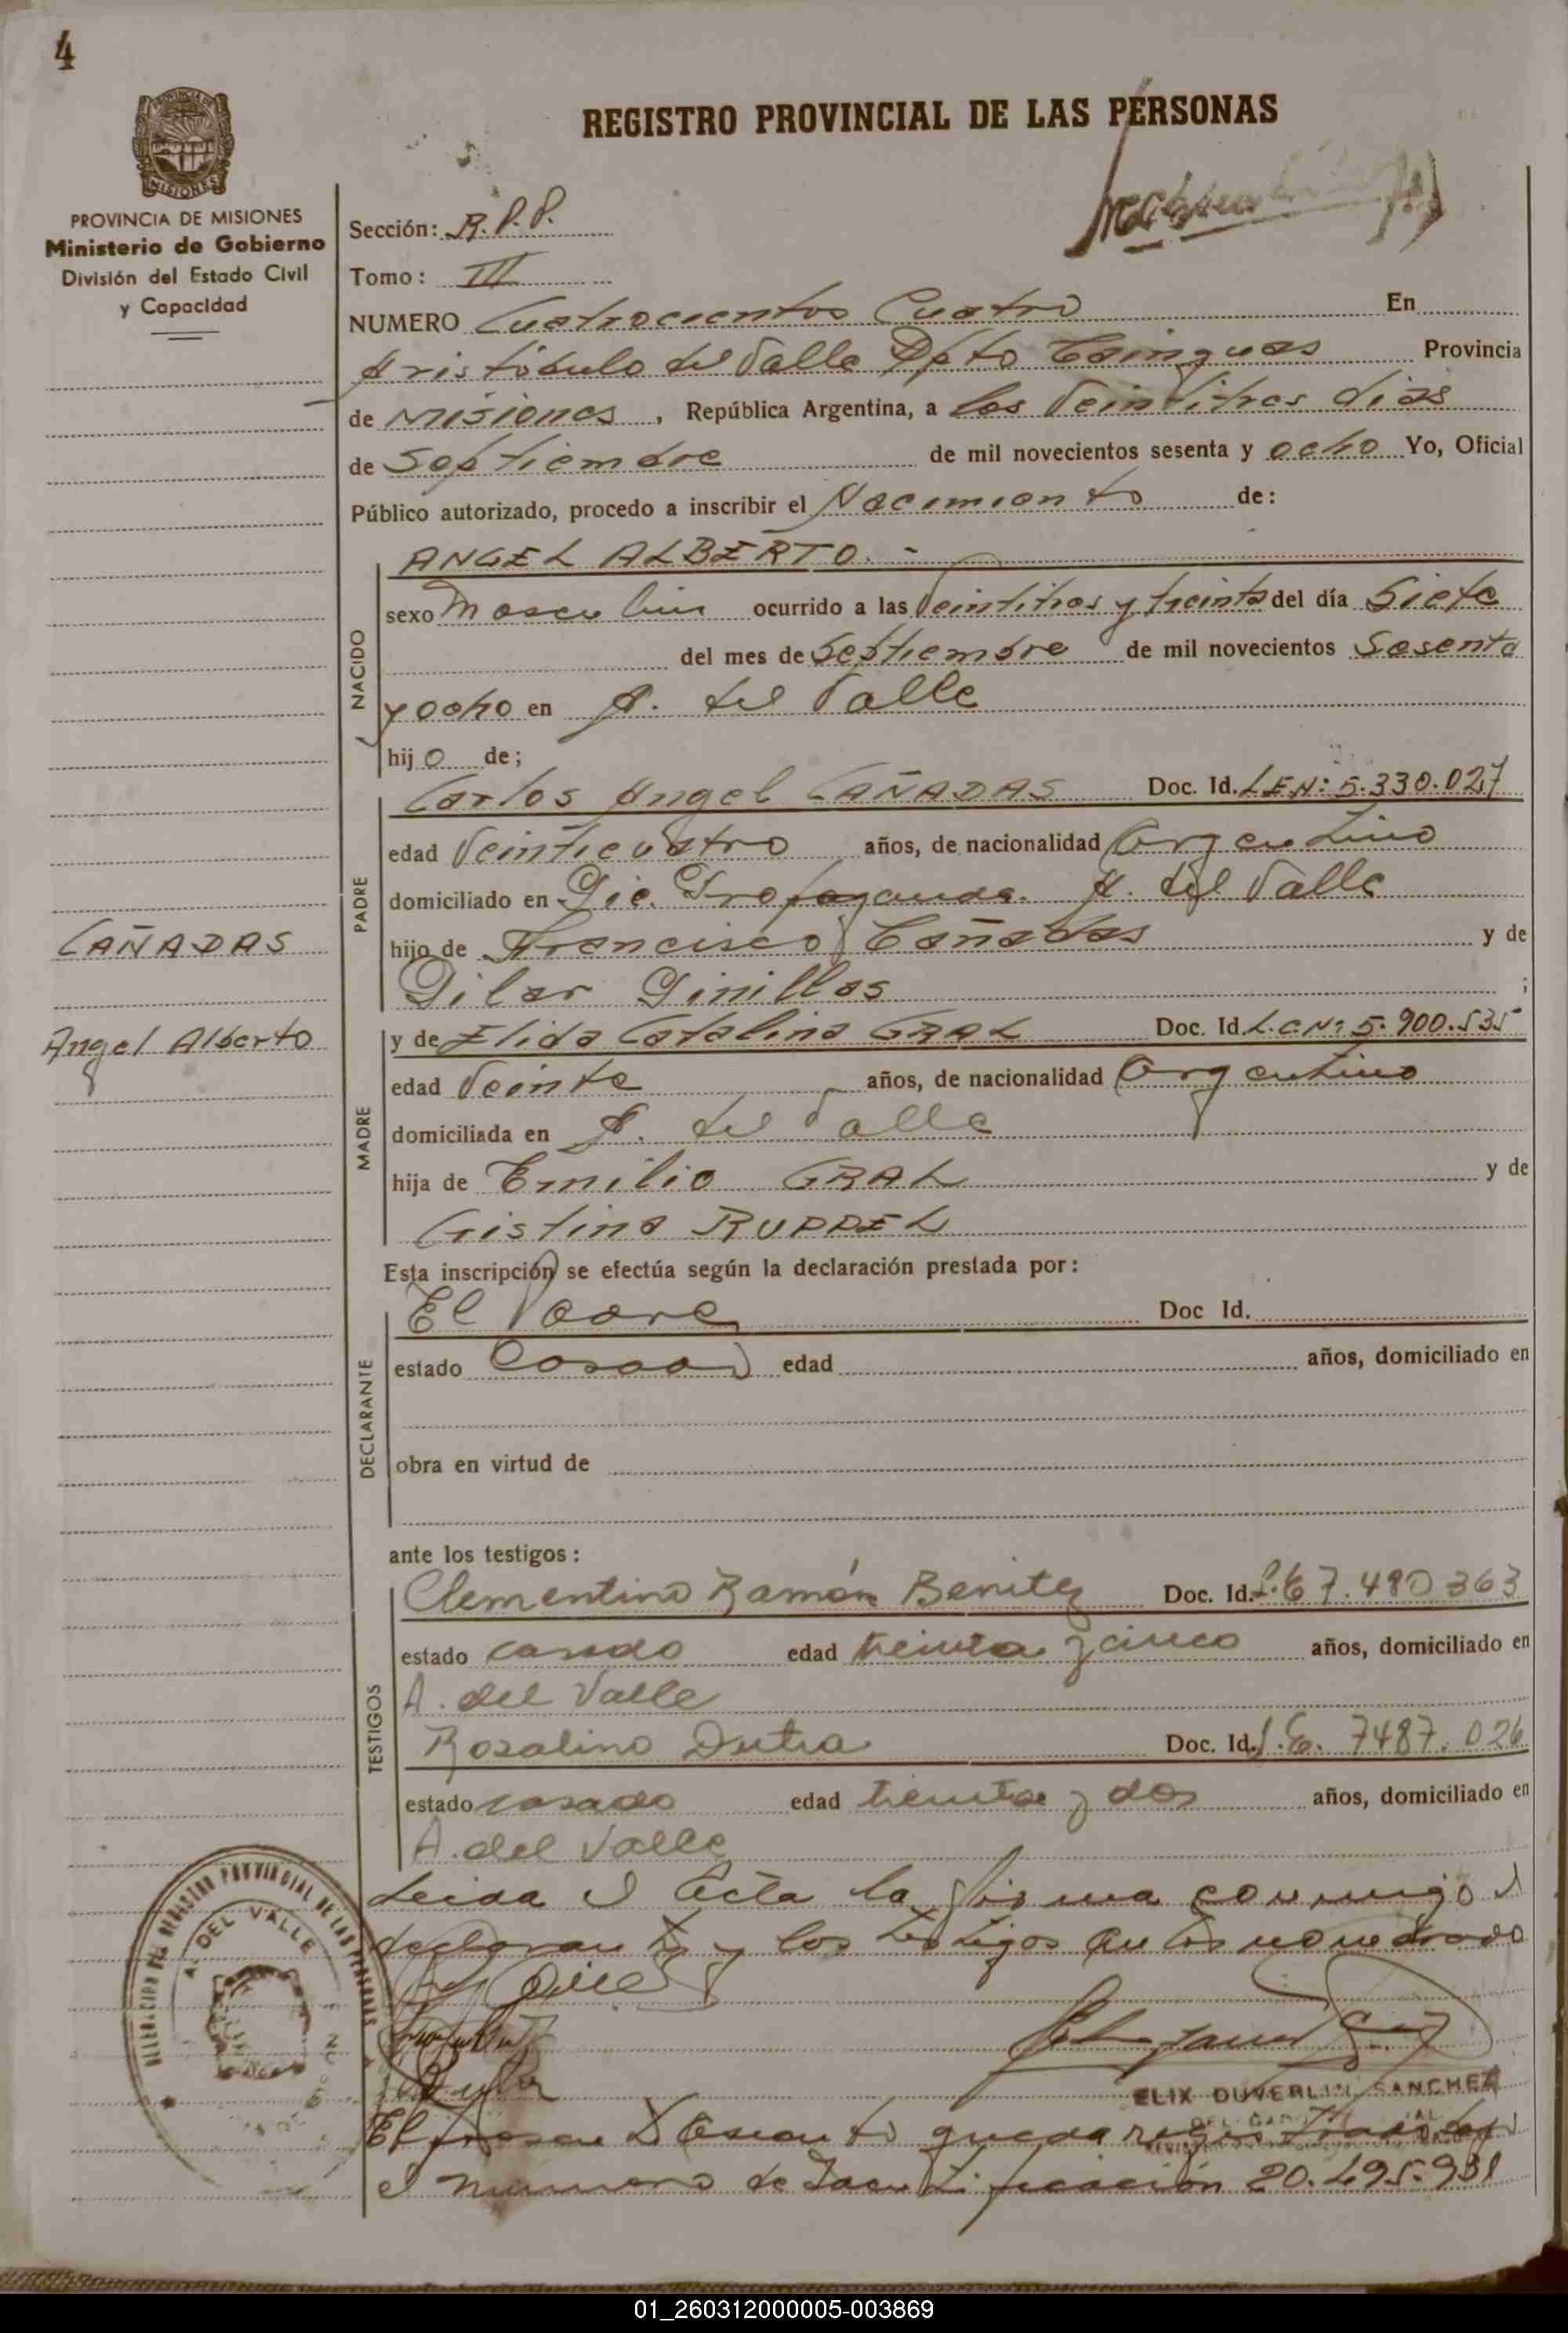 4
REGISTRO PROVINCIAL DE LAS PERSONAS
PROVINCIA DE MISIONES
Ministerio de Gobierno
División del Estado Civil
y Capacidad
Sección: R.P.P.
Tomo: III
NUMERO Cuatrocientos Cuatro En
Aristóbulo del Valle Dpto Cainguas Provincia
de Misiones, República Argentina, a los Veintitres dias
de Septiembre de mil novecientos sesenta y ocho Yo, Oficial
Público autorizado, procedo a inscribir el Nacimiento de:
NACIDO
ANGEL ALBERTO.-
sexo Masculino ocurrido a las Veintitres y treinta del día Siete
del mes de Septiembre de mil novecientos Sesenta
y ocho en A. del Valle
hijo de;
PADRE
Carlos Angel CAÑADAS Doc. Id. L.E.N: 5.330.027
edad Veinticuatro años, de nacionalidad Argentino
domiciliado en Pic. Propaganda. A. del Valle
hijo de Francisco Cañadas y de
Pilar Pinillas ;
CAÑADAS
Angel Alberto
MADRE
y de Elida Catalina GRAL Doc. Id. L.C.N: 5.900.535
edad Veinte años, de nacionalidad Argentino
domiciliada en A. del Valle
hija de Emilio GRAL y de
Cristina RUPPEL
Esta inscripción se efectúa según la declaración prestada por:
DECLARANTE
El Padre Doc Id.
estado Casado edad años, domiciliado en
obra en virtud de
ante los testigos:
TESTIGOS
Clementino Ramón Benitez Doc. Id. L.E 7.490363
estado casado edad treinta y cinco años, domiciliado en
A. del Valle
Rosalino Dutra Doc. Id. L.E. 7487.026
estado casado edad treinta y dos años, domiciliado en
A. del Valle
Leida el Acta la firma conmigo el
declarante y los testigos
DELEGACION DEL REGISTRO PROVINCIAL DE LAS PERSONAS
A. DEL VALLE
ELIX DUVERLIN SANCHEZ
El queda registrado
el numero de Identificación 20.495.931
01_260312000005-003869